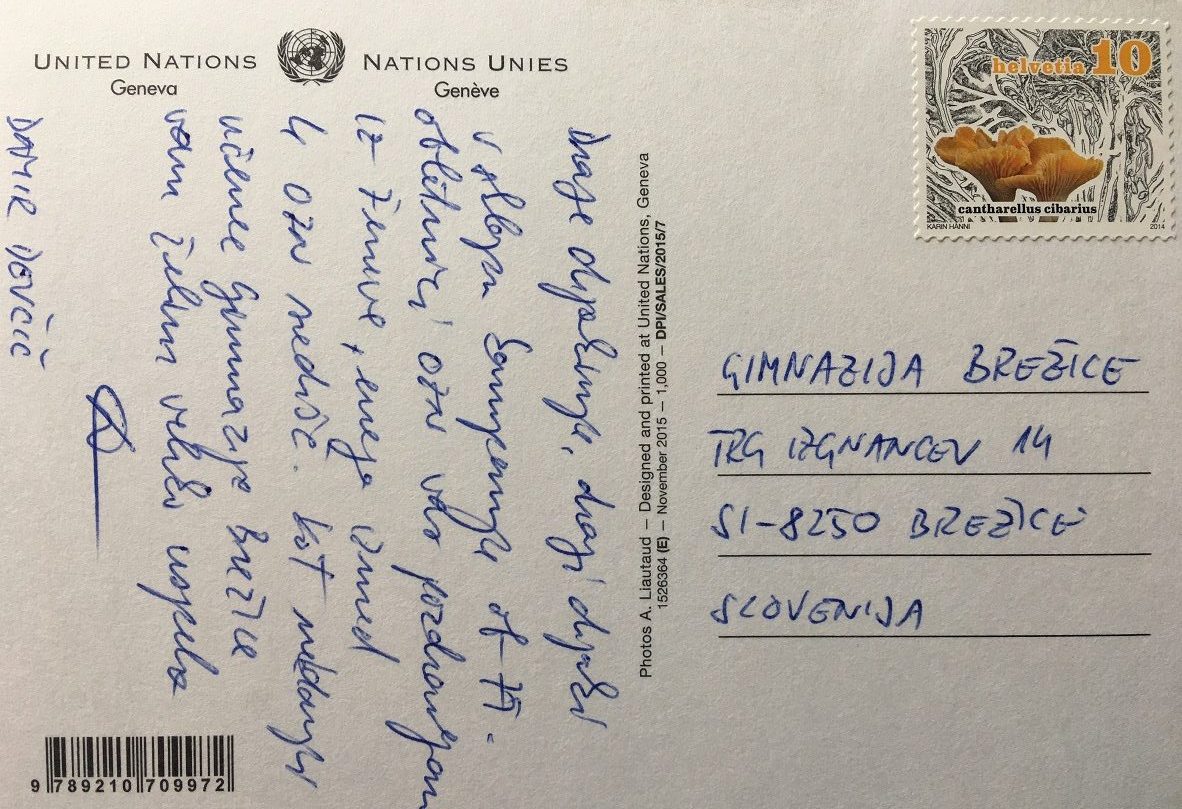 UNITED NATIONS NATIONS UNIES
Geneva Genève
helvetia 10
cantharellus cibarius
KARIN HÄNNI 2014
Drage dijakinje, dragi dijaki
v sklopu kampanje ob 70-
obletnici OZN vas pozdravljam
iz Ženeve, enega izmed
4 OZN središč. Kot nekdanji
učenec Gimnazije Brežice
vam želim veliko uspeha
DAMIR DOVČIĆ
Photos A. Liautaud – Designed and printed at United Nations, Geneva
1526364 (E) – November 2015 – 1,000 – DPI/SALES/2015/7
GIMNAZIJA BREŽICE
TRG IZGNANCEV 14
SI-8250 BREŽICE
SLOVENIJA
9 789210 709972